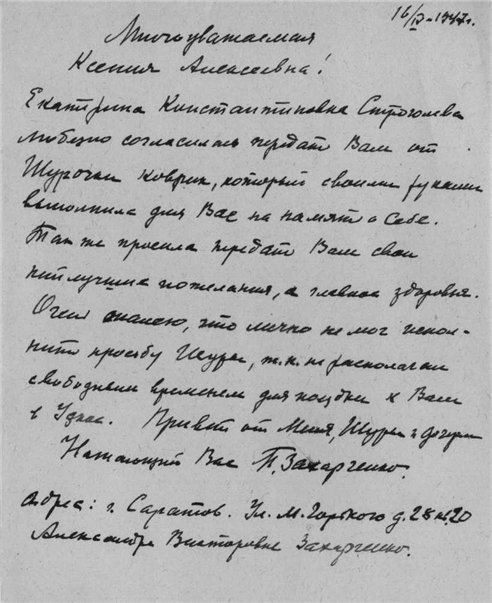 16/IV-1947г.
Многоуважаемая
Ксения Алексеевна!
Екатерина Константиновна Строголева
любезно согласилась передать Вам от
Шурочки коврик, который своими руками
выполнила для Вас на память о себе.
Так же просила передать Вам свои
наилучшие пожелания, а главное здоровья.
Очень жалею, что лично не мог испол-
нить просьбу Шуры, т.к. не располагаю
свободным временем для поездки к Вам
в. Привет от Меня, Шуры и дочери
Вас П. Захарченко.
Адрес: г. Саратов. Ул. М. Горького д. 28 кв. 20
Александре Викторовне Захарченко.